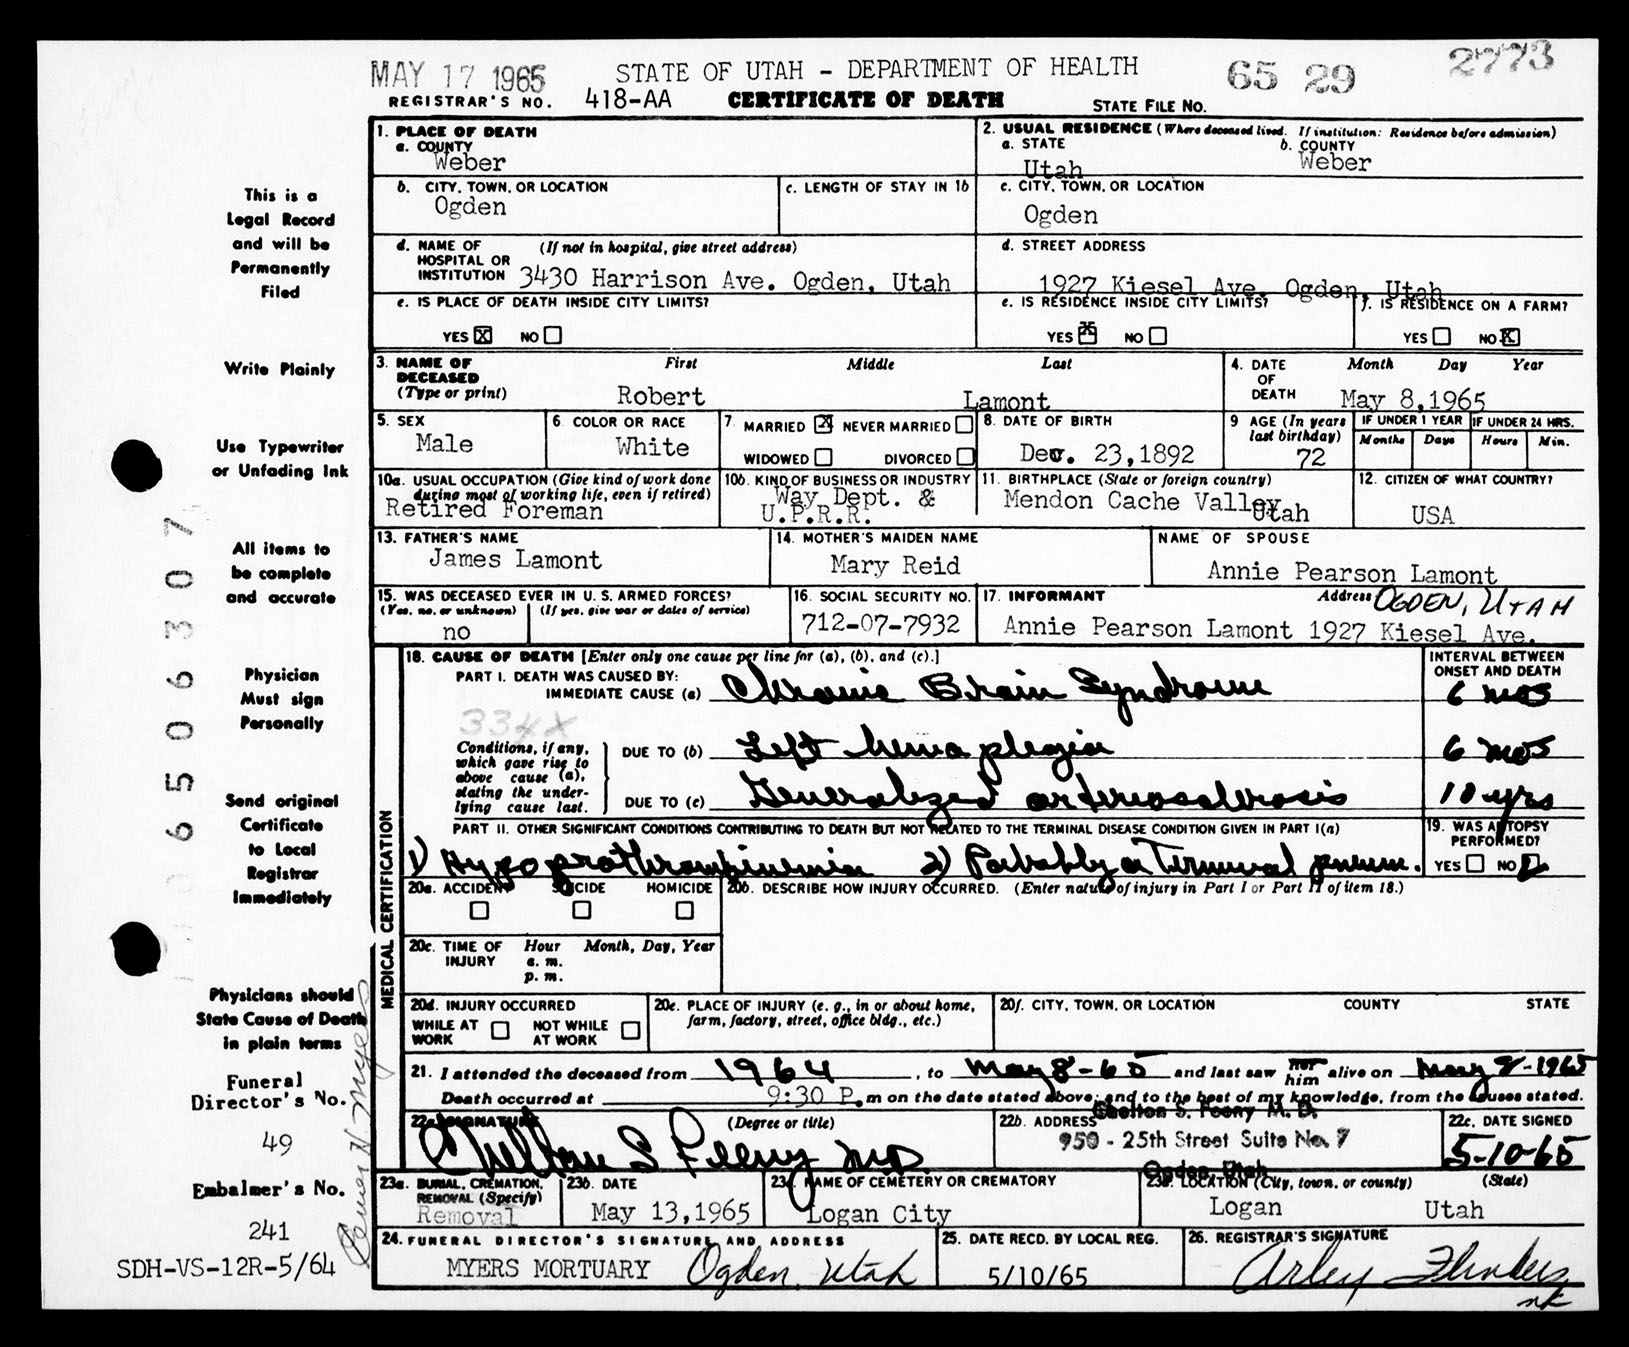 MAY 17 1965 STATE OF UTAH - DEPARTMENT OF HEALTH 65 29 2773
REGISTRAR'S NO. 418-AA CERTIFICATE OF DEATH STATE FILE NO.
This is a
Legal Record
and will be
Permanently
Filed
Write Plainly
Use Typewriter
or Unfading Ink
All items to
be complete
and accurate
Physician
Must sign
Personally
Send original
Certificate
to Local
Registrar
Immediately
Physicians should
State Cause of Death
in plain terms
Funeral
Director's No.
49
Embalmer's No.
241
SDH-VS-12R-5/64
0 6 5 0 6 3 0 7
1. PLACE OF DEATH
a. COUNTY
Weber
2. USUAL RESIDENCE (Where deceased lived. If institution: Residence before admission)
a. STATE b. COUNTY
Utah Weber
b. CITY, TOWN, OR LOCATION
Ogden
c. LENGTH OF STAY IN 1b
c. CITY, TOWN, OR LOCATION
Ogden
d. NAME OF (If not in hospital, give street address)
HOSPITAL OR
INSTITUTION 3430 Harrison Ave. Ogden, Utah
d. STREET ADDRESS
1927 Kiesel Ave. Ogden, Utah
e. IS PLACE OF DEATH INSIDE CITY LIMITS?
YES X NO
e. IS RESIDENCE INSIDE CITY LIMITS?
YES X NO
f. IS RESIDENCE ON A FARM?
YES NO X
3. NAME OF First Middle Last
DECEASED
(Type or print) Robert Lamont
4. DATE Month Day Year
OF
DEATH May 8,1965
5. SEX
Male
6. COLOR OR RACE
White
7. MARRIED X NEVER MARRIED
WIDOWED DIVORCED
8. DATE OF BIRTH
Dec. 23,1892
9 AGE (In years
last birthday)
72
IF UNDER 1 YEAR IF UNDER 24 HRS.
Months Days Hours Min.
10a. USUAL OCCUPATION (Give kind of work done
during most of working life, even if retired)
Retired Foreman
10b. KIND OF BUSINESS OR INDUSTRY
Way Dept. &
U.P.R.R.
11. BIRTHPLACE (State or foreign country)
Mendon Cache Valley
Utah
12. CITIZEN OF WHAT COUNTRY?
USA
13. FATHER'S NAME
James Lamont
14. MOTHER'S MAIDEN NAME
Mary Reid
NAME OF SPOUSE
Annie Pearson Lamont
15. WAS DECEASED EVER IN U.S. ARMED FORCES?
(Yes, no, or unknown) (If yes, give war or dates of service)
no
16. SOCIAL SECURITY NO.
712-07-7932
17. INFORMANT Address OGDEN, UTAH
Annie Pearson Lamont 1927 Kiesel Ave.
MEDICAL CERTIFICATION
18. CAUSE OF DEATH [Enter only one cause per line for (a), (b), and (c).]
INTERVAL BETWEEN
ONSET AND DEATH
PART I. DEATH WAS CAUSED BY:
IMMEDIATE CAUSE (a) Chronic Brain Syndrome 6 mos
334X
Conditions, if any,
which gave rise to
above cause (a),
stating the under-
lying cause last.
DUE TO (b) Left hemiplegia 6 mos
DUE TO (c) Generalized arteriosclerosis 10 yrs
PART II. OTHER SIGNIFICANT CONDITIONS CONTRIBUTING TO DEATH BUT NOT RELATED TO THE TERMINAL DISEASE CONDITION GIVEN IN PART I(a)
1) Hypoprothrombinemia 2) Probably a Terminal pneum.
19. WAS AUTOPSY
PERFORMED?
YES NO
20a. ACCIDENT SUICIDE HOMICIDE
20b. DESCRIBE HOW INJURY OCCURRED. (Enter nature of injury in Part I or Part II of item 18.)
20c. TIME OF Hour Month, Day, Year
INJURY a. m.
p. m.
20d. INJURY OCCURRED
WHILE AT NOT WHILE
WORK AT WORK
20e. PLACE OF INJURY (e. g., in or about home,
farm, factory, street, office bldg., etc.)
20f. CITY, TOWN, OR LOCATION COUNTY STATE
21. I attended the deceased from 1964, to May 8-65 and last saw her him alive on May 8-1965
Death occurred at 9:30 P. m on the date stated above; and to the best of my knowledge, from the causes stated.
22a. SIGNATURE (Degree or title)
Chelton S Feeny MD.
22b. ADDRESS Chelton S. Feeny M. D.
950 - 25th Street Suite No. 7
Ogden, Utah
22c. DATE SIGNED
5-10-65
23a. BURIAL, CREMATION,
REMOVAL (Specify)
Removal
23b. DATE
May 13,1965
23c. NAME OF CEMETERY OR CREMATORY
Logan City
23d. LOCATION (City, town, or county) (State)
Logan Utah
24. FUNERAL DIRECTOR'S SIGNATURE AND ADDRESS
MYERS MORTUARY Ogden, Utah
25. DATE RECD. BY LOCAL REG.
5/10/65
26. REGISTRAR'S SIGNATURE
Arley Flinders
nk